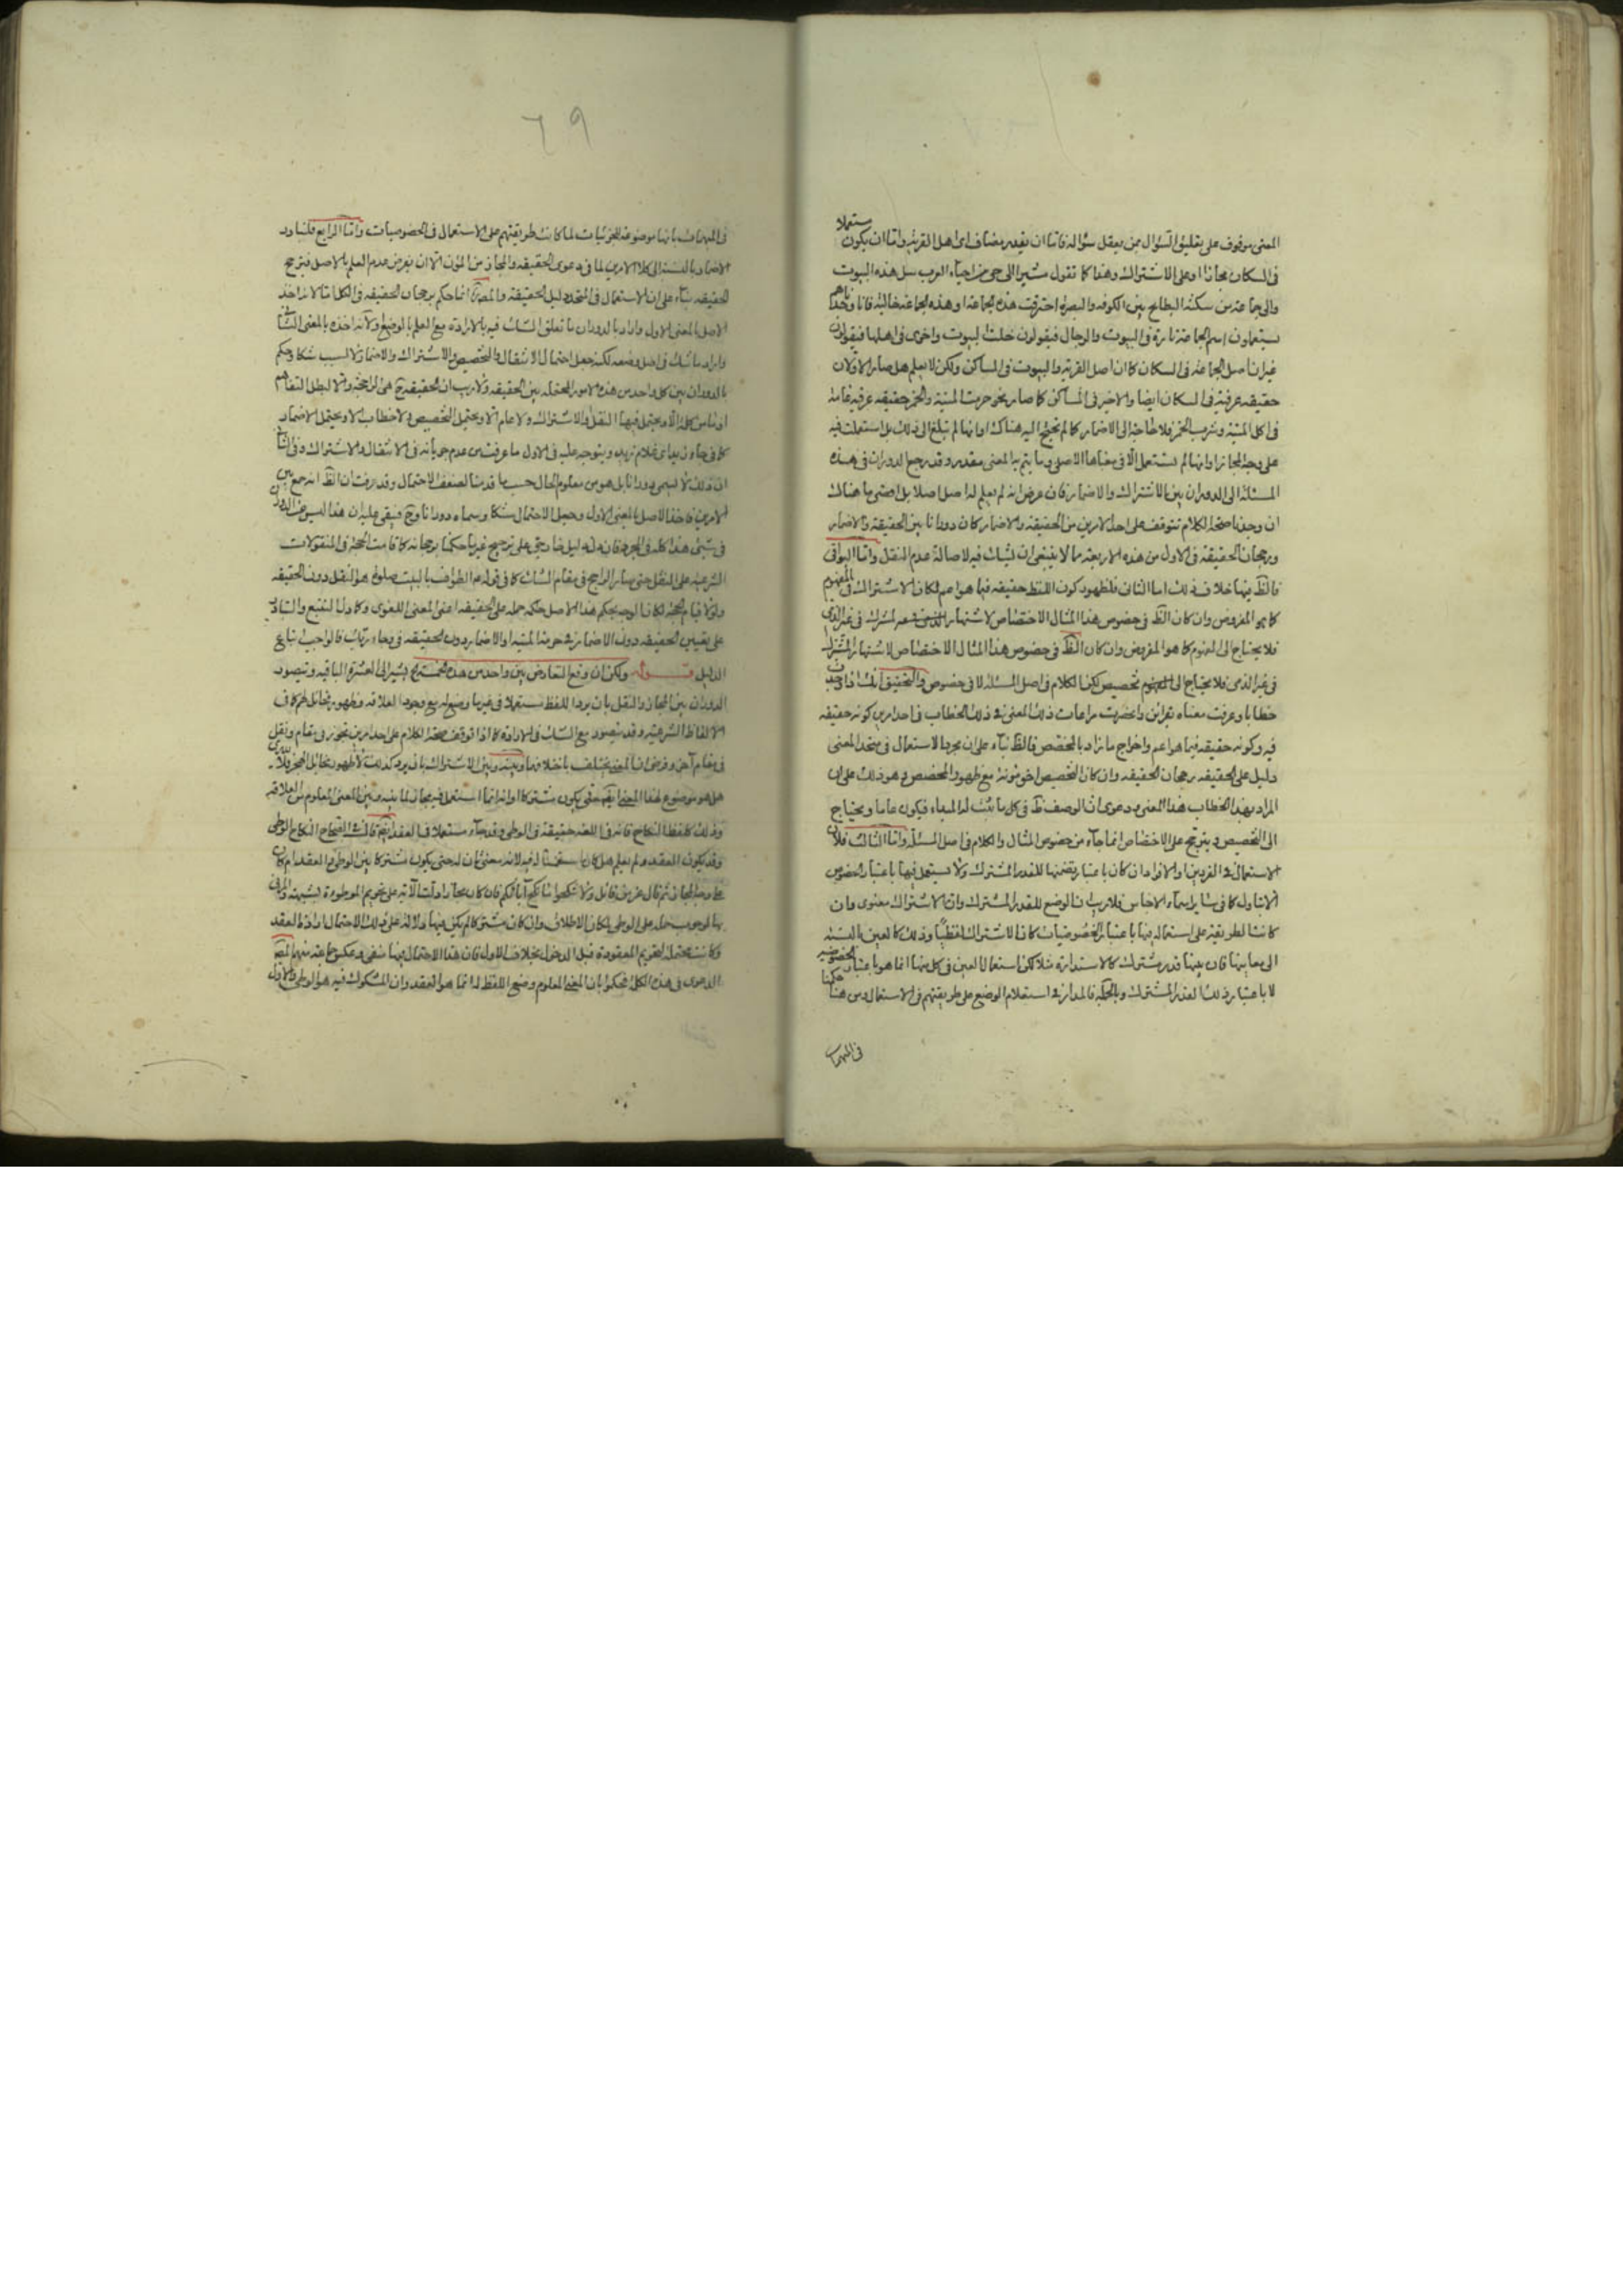 المعنى موقوف على تعليق السؤال بمن يعقل سؤاله فاما ان يقدر مضاف اى اهل القرية واما ان يكون مستعملا
فى السكان مجازا او على الاشتراك وهذا كما تقول مشيرا الى حى من احياء العرب سل هذه البيوت
والى جماعة من سكنة البطايح بين الكوفه والبصره احترقت هذه الجماعة وهذه الجماعة خالية فانا وجدناهم
يستعملون اسم الجماعة تارة فى البيوت والرجال فيقولون خلت البيوت واخرى فى اهلها فيقولون
غير ان اصل الجماعة فى السكان كما ان اصل القرية والبيوت فى المساكن ولكن لا يعلم هل صار الاولان
حقيقه عرفية فى السكان ايضا والاخير فى المساكن كما صار نحو حرمت الميتة والخمر حقيقه عرفية عامة
فى اكل الميتة وشرب الخمر فلا حاجة الى الاضمار كما لم نحتج اليه هناك او انها لم تبلغ الى ذلك بل استعملت فيه
على وجه المجاز او انها لم تستعمل الا فى معناها الاصلى وما يتم به المعنى مقدر وقد رجع الدوران فى هذه
المسئلة الى الدوران بين الاشتراك والاضمار فان عرض انه لم يعلم له اصل اصلا بل اقصى ما هناك
ان وجدنا صحة الكلام تتوقف على احد الامرين من الحقيقة والاضمار كان دورانا بين الحقيقة والاضمار
ورجحان الحقيقة فى الاول من هذه الاربعة مما لا ينبغى ان يشك فيه لاصالة عدم النقل واما البواقى
فالظ فيها خلاف ذلك اما الثانى فلظهور كون اللفظ حقيقه فيما هو اعم لمكان الاشتراك فى المفهوم
كما هو المفروض وان كان الظ فى خصوص هذا المثال الاختصاص لاشتهار المشرك فى غير الذى
فلا يحتاج الى المفهوم كما هو المفروض وان كان الظ فى خصوص هذا المثال الاختصاص لاشتهار المشرك
فى غير الذى فلا يحتاج الى تخصيص لكن الكلام فى اصل المسئلة لا فى خصوص والتحقيق انك اذا وجدت
خطابا وعرفت معناه بقرائن واحضرت مراعات ذلك المعنى فى ذلك الخطاب فى احد امرين كونه حقيقه
فيه وكونه حقيقه فيما هو اعم واخراج ما زاد بالمخصص فالظ بناء على ان مجرد الاستعمال فى متحد المعنى
دليل على الحقيقه رجحان الحقيقه وان كان التخصيص اخو مونة مع ظهور المخصص وهو ذلك على ان
المراد بهذا الخطاب هذا المعنى ودعوى ان الوصف ظ فى كل ما ثبت له المبداء فيكون عاما ويحتاج
الى التخصيص ويترجح على الاختصاص انما جاء من خصوص المثال والكلام فى اصل المسئلة واما الثالث فلان
الاستعمال فى الفردين او الافراد ان كان باعتبار تضمنها للقدر المشترك ولا يستعمل فيها باعتبار الخصوص
الا بتاول كما فى ساير اسماء الاجناس فلا ريب ان الوضع للقدر المشترك وان الاشتراك معنوى وان
كانت الطريقة على استعماله فيها باعتبار الخصوصيات كان الاشتراك لفظيا وذلك كالعين بالنسبة
الى معانيها فان بينها قدر مشترك كالاستدارة مثلا لكن استعمال العين فى كل منها انما هو باعتبار الخصوصية
لا باعتبار ذلك القدر المشترك وبالجملة فالمدار فى استعلام الوضع على طريقتهم فى الاستعمال ومن هنا حكمنا
فى المبهمات
٦٩
فى المبهمات بانها موضوعة للجزئيات لما كانت طريقتهم على الاستعمال فى الخصوصيات واما الرابع فلتبادر
الاضمار بالنسبة الى كلا الامرين لما فى دعوى الحقيقه والمجاز من المؤن الا ان يفرض عدم العلم بالاصل فترجح
الحقيقه بناء على ان الاستعمال فى المتحد دليل الحقيقة والمص انما حكم برجحان الحقيقه فى الكل اما لانه اخذ
الاصل بالمعنى الاول واراد بالدوران ما تعلق الشك فيه بالارادة مع العلم بالوضع ولانه اخذه بالمعنى الثانى
واراد ما شك فى اصل وضعه لكنه جعل احتمال الانتقال والتخصيص والاشتراك والاضمار لا لسبب شكا وحكم
بالدوران بين كل واحد من هذه الامور المحتمله وبين الحقيقه ولا ريب ان الحقيقة ح هى الراجحة والا لبطل التفاهم
اذ ما من كلمة الا ويحتمل فيها النقل والاشتراك ولا عام الا ويحتمل التخصيص ولا خطاب الا ويحتمل الاضمار
كما فى جاء زيد اى غلام زيد ويتوجه عليه فى الاول ما عرفت من عدم جريانه فى الانتقال والاشتراك وفى الثانى
ان ذلك لا يسمى دورانا بل هو من معلوم الحال حسب ما قدمنا لضعف الاحتمال وقد عرفت ان الظ انه جمع بين
الامرين فاخذ الاصل بالمعنى الاول وجعل الاحتمال شكا وسماه دورانا وح فيبقى عليه ان هذا ليس من الدوران
فى شئ هذا كله فى المجرد فان دل دليل خارجى على ترجيح غيرها حكمنا برجحانه كما قامت الحجة فى المنقولات
الشرعية على النقل حتى صار الراجح فى مقام الشك كما فى قوله ع الطواف بالبيت صلوة هو النقل دون الحقيقه
ولولا قيام الحجة لكان الوجه بحكم هذا الاصل حمله على الحقيقه اعنى المعنى اللغوى وكما دل التتبع والتبادر
على تعيين الحقيقه دون الاضمار فى حرمت الميتة والاضمار دون الحقيقه فى وجاء ربك فالواجب اتباع
الدليل قوله ولكن ان وقع التعارض بين واحد من هذه الخمسة الخ يشير الى العشرة الباقيه ويتصور
الدوران بين المجاز والنقل بان يرد اللفظ مستعملا فى غير ما وضع له مع وجود العلاقه وظهور مخائل الهجر كما فى
الالفاظ الشرعيه وقد يتصور مع الشك فى الارادة كما اذا توقف صحة الكلام على احد امرين تجوز فى مقام ونقل
فى مقام آخر وفرض ان المعنى يختلف باختلافهما وبينه وبين الاشتراك بان يرد كذلك لا لظهور مخائل الهجر فلا يدرى
هل هو موضوع لهذا المعنى ايضا حتى يكون مشتركا او انه انما استعمل فيه مجازا لما بينه وبين المعنى المعلوم من العلاقه
وذلك كلفظ النكاح فانه فى اللغة حقيقة فى الوطى وقد جاء مستعملا فى العقد ايضا قال فى الصحاح النكاح الوطى
وقد يكون العقد ولم يعلم هل كان لانه معنى ثان له حتى يكون مشتركا بين الوطى والعقد ام كان
على وجه المجاز ثم قال عز من قائل ولا تنكحوا ما نكح آباؤكم فان كان مجازا دلت الآية على تحريم الموطوءة بشبهة والمزنى
بها لوجوب حمله على الوطى لمكان الاطلاق وان كان مشتركا لم يكن فيها دلالة على ذلك لاحتمال ارادة العقد
وكانت محتملة لتحريم المعقودة قبل الدخول بخلافها للاول فان هذا الاحتمال فيها منفى وعكس جماعة منهم المص
الدعوى فى هذه الكلمة فحكموا بان المعنى المعلوم وضع اللفظ له انما هو العقد وان المشكوك فيه هو الوطى والاول